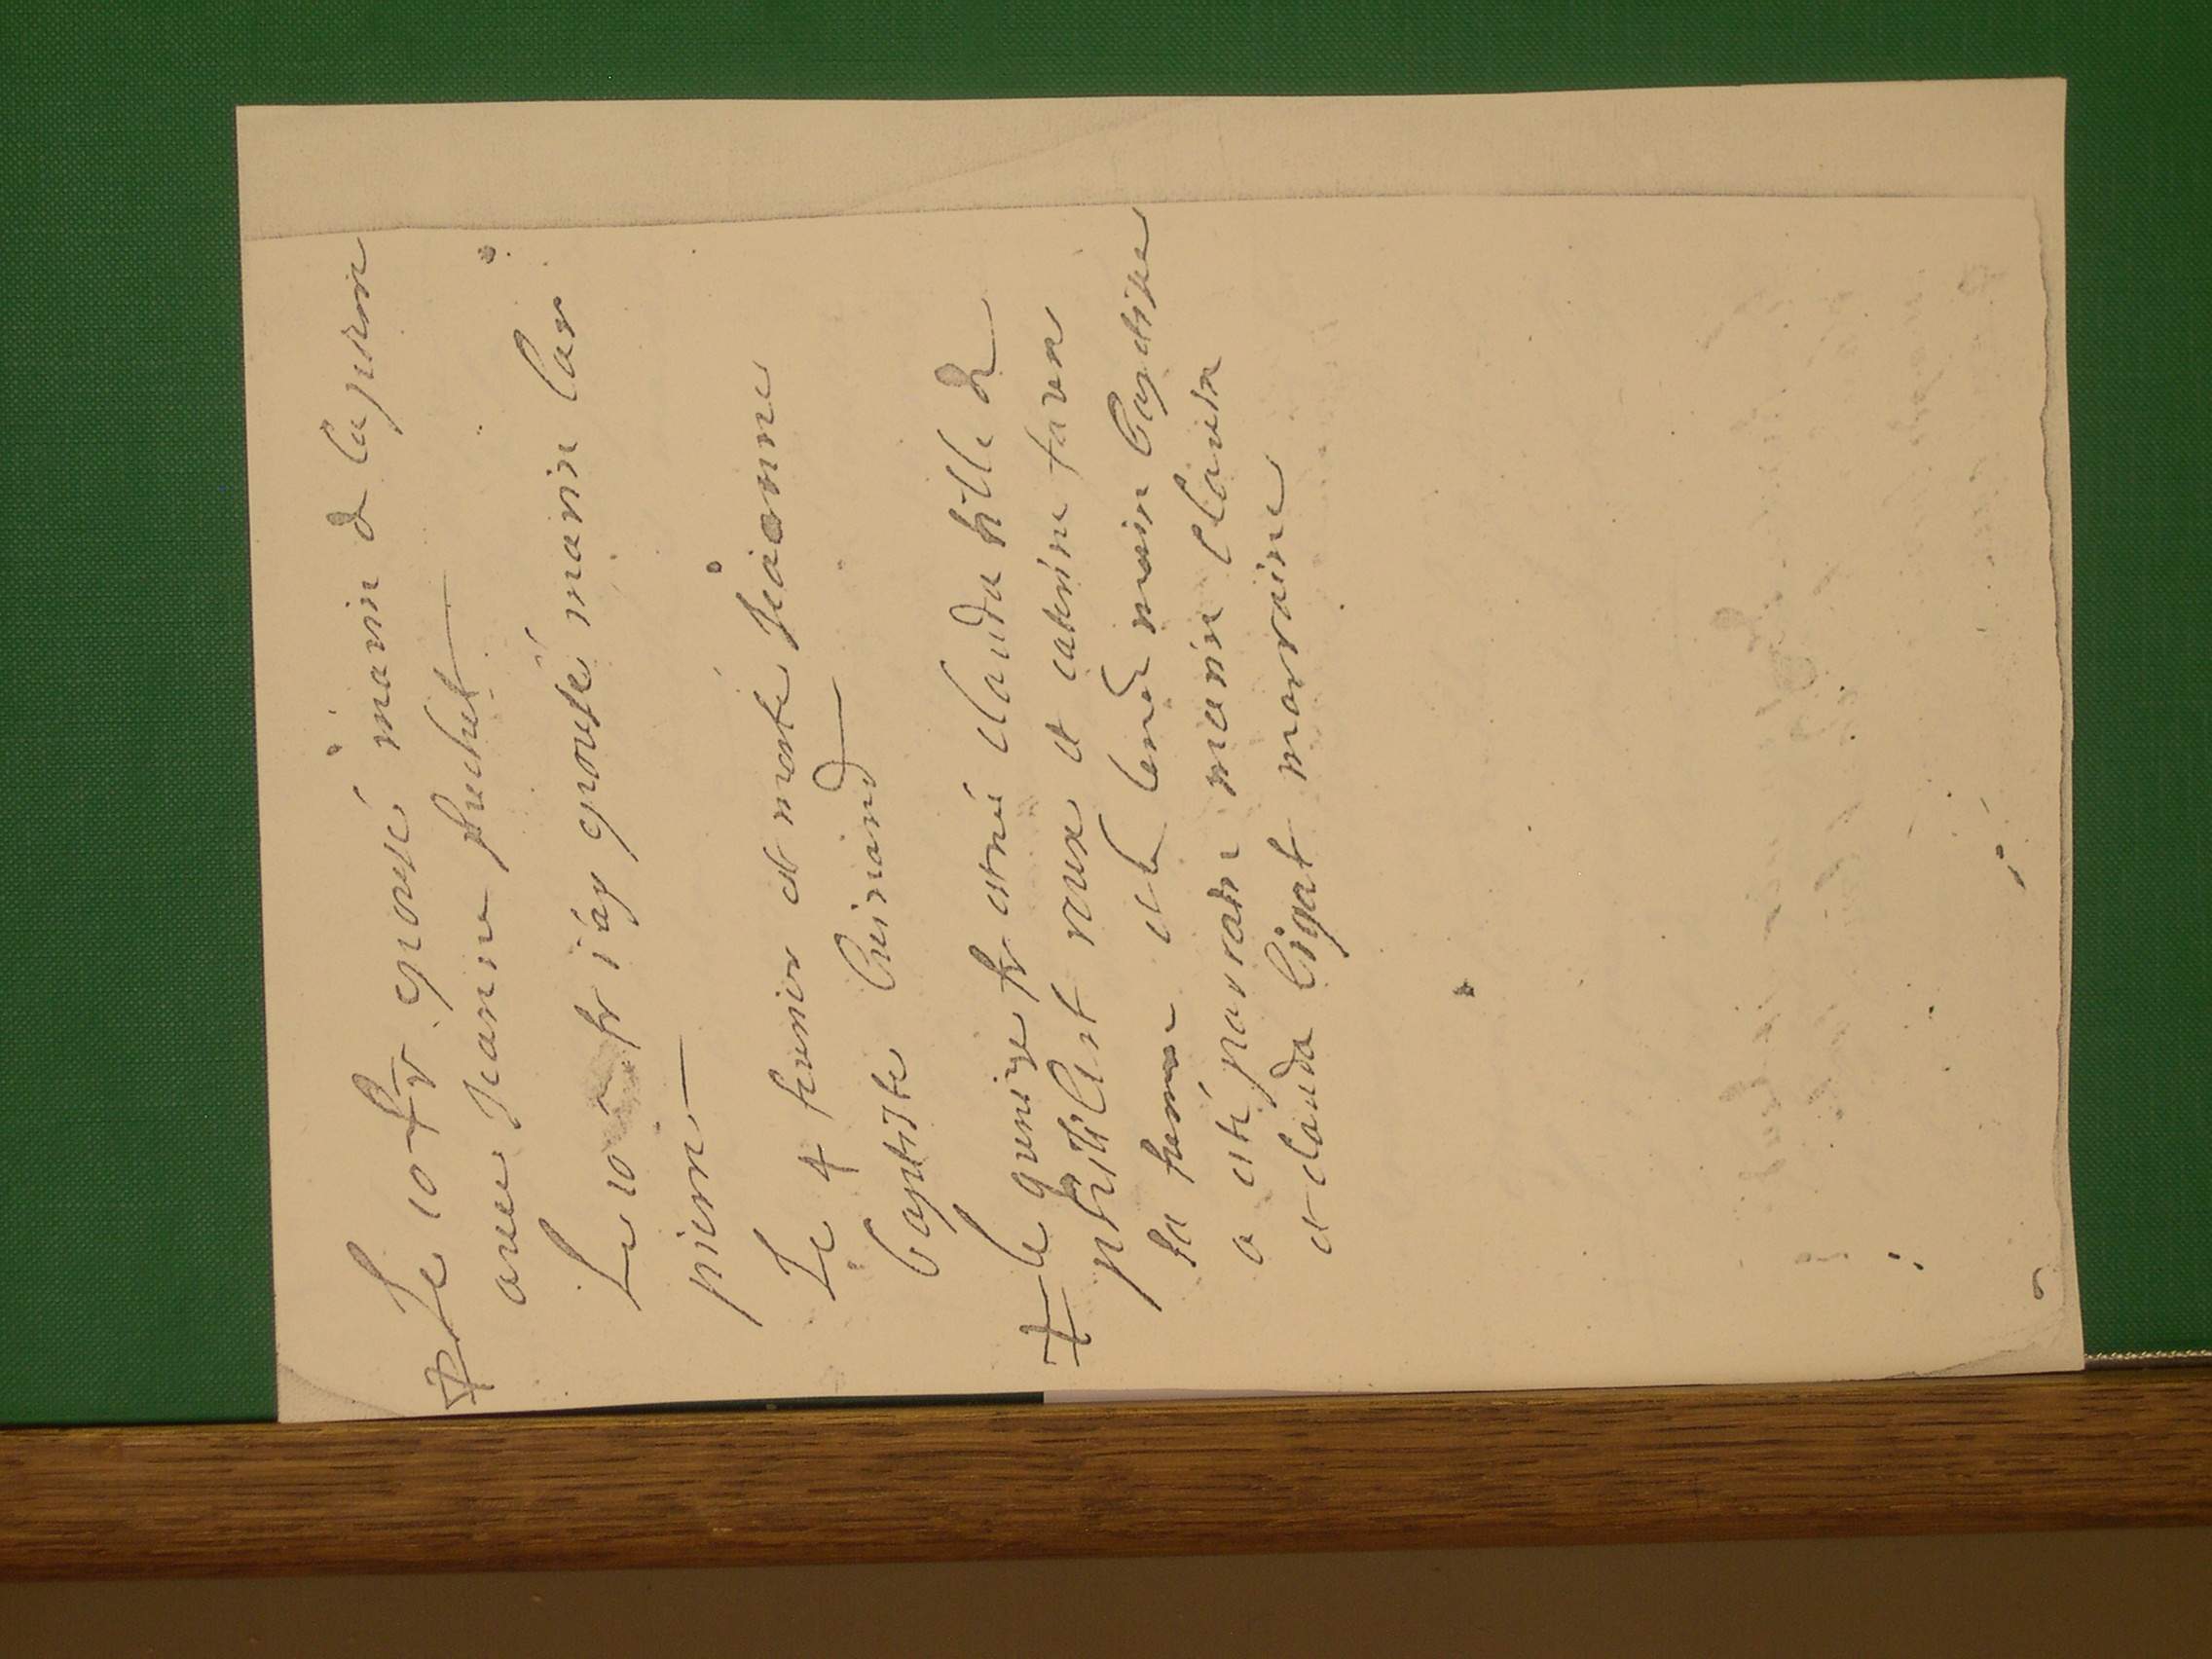 Le 10 fr epousé marin d lapierre
avec Jeanne puchet
Le 10 fr iáy epousé marin las
pierre
Le 4 fevrier est morte Jeanne
baptiste
le quinze fr est née clauda fille d
philibert roux et caterine faure
sa femme et le lendemain baptisée
a esté parrain marin
et clauda bigat marraine